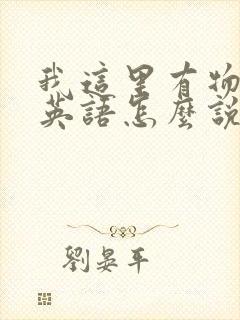 我這里有物
英語怎麼說
劉晏平